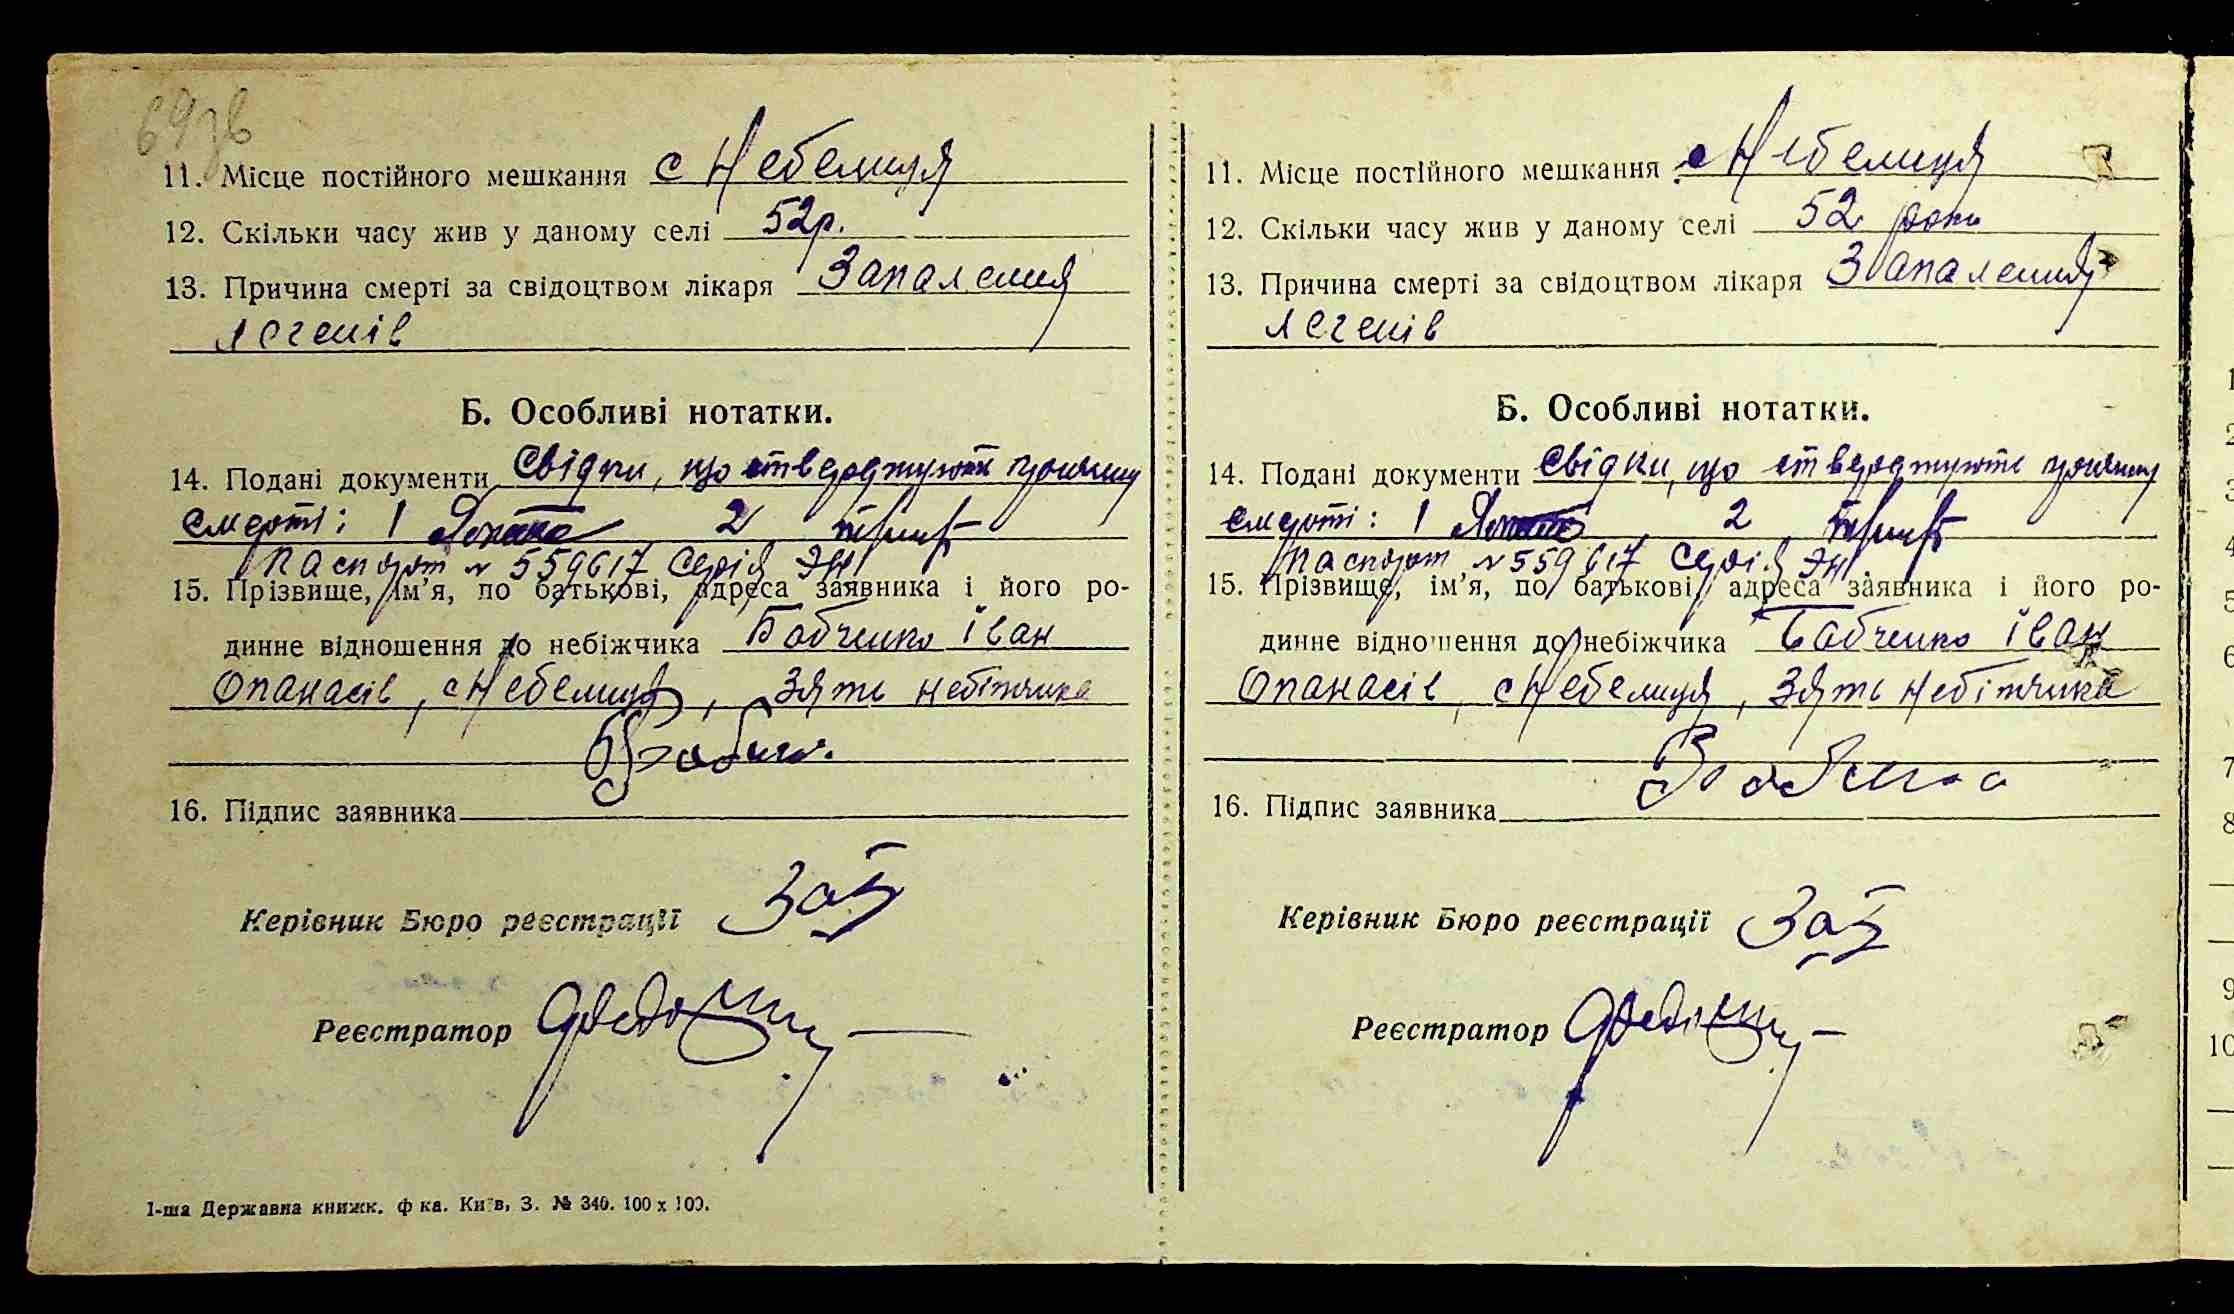 69зв
11. Місце постійного мешкання с Небелиця
12. Скільки часу жив у даному селі 52р.
13. Причина смерті за свідоцтвом лікаря Запалення
легенів
Б. Особливі нотатки.
14. Подані документи Свідки, що стверджують причину
смерті: 1 2
Паспорт № 559617 Серія ЭН
15. Прізвище, ім’я, по батькові, адреса заявника і його ро-
динне відношення до небіжчика Бабченко Іван
Опанасів, с Небелиця, зять небіжчика
16. Підпис заявника
Керівник Бюро реєстрації
Реєстратор
1-ша Державна книжк. ф-ка. Київ, З. № 340. 100 х 100.
11. Місце постійного мешкання с Небелиця
12. Скільки часу жив у даному селі 52 роки
13. Причина смерті за свідоцтвом лікаря Запалення
легенів
Б. Особливі нотатки.
14. Подані документи Свідки, що стверджують причину
смерті: 1 2
Паспорт № 559617 Серія ЭН
15. Прізвище, ім’я, по батькові, адреса заявника і його ро-
динне відношення до небіжчика Бабченко Іван
Опанасів, с Небелиця, зять небіжчика
16. Підпис заявника
Керівник Бюро реєстрації
Реєстратор
1
2
3
4
5
6
7
8
9
10